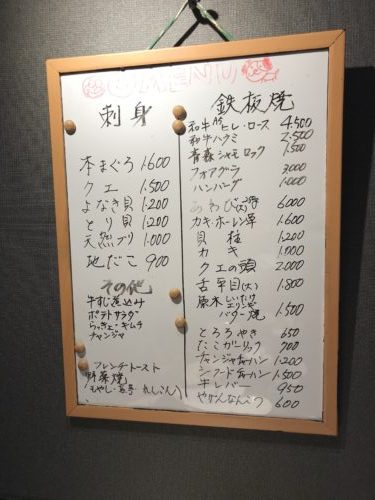 刺身
本まぐろ 1.600
クエ 1.500
よなき貝 1.200
とり貝 1.200
天然ブリ 1.000
地だこ 900
その他
牛すじ煮込み
ポテトサラダ
らっきょ・キムチ
チャンジャ
フレンチトースト
野菜焼
(もやし・長芋・れんこん)
鉄板焼
和牛A5ヒレ・ロース 4.500
和牛ハラミ 2.500
青森シャモロック 1.500
フォアグラ 3000
ハンバーグ 1.000
あわび 6000
カキ・ホーレン草 1.600
貝柱 1.200
カキ 1.000
クエの頭 2.000
舌平目(大) 1.800
原木しいたけ
エリンギ
バター焼 1.500
とろろやき 650
たこガーリック 700
チャンジャチャーハン 1.200
シーフードチャーハン 1.500
牛レバー 950
やげんなんこつ 600